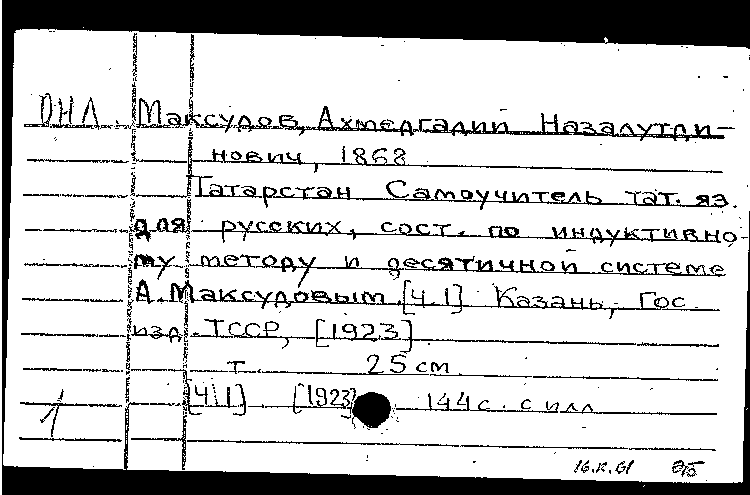 ДНЛ. Максудов, Ахмедгадий Назалутди-
нович, 1868
Татарстан Самоучитель тат. яз.
для русских, сост. по индуктивно-
му методу и десятичной системе
А. Максудовым. [Ч. 1] Казань, Гос.
изд. ТССР, [1923]
т. 25 см.
1 [Ч. 1] [1923] 144 с. с илл
16.X.61